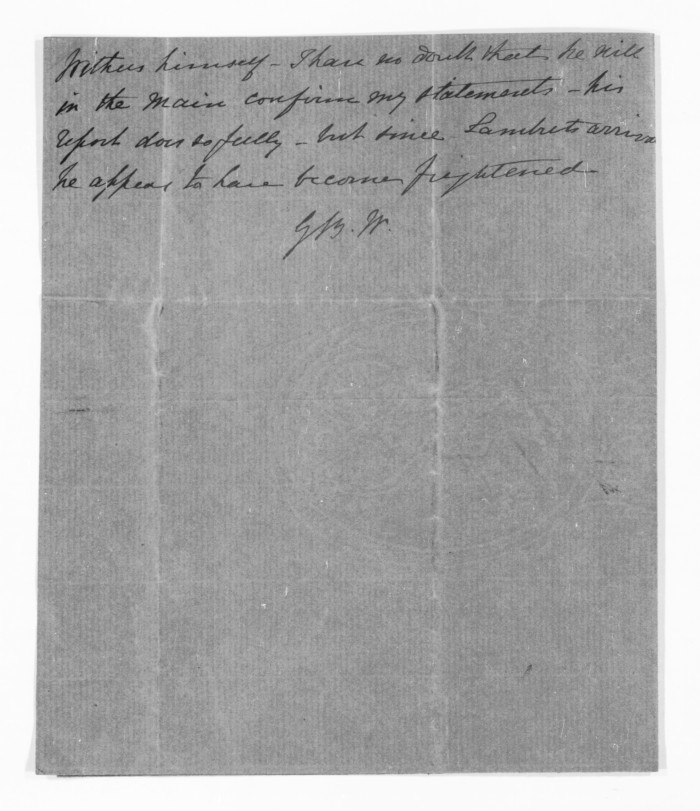 Withers himself - I have no doubt that he will
in the main confirm my statements - his
report does so fully - but since Lambert's arrival
he appears to have become frightened -
G.B.W.